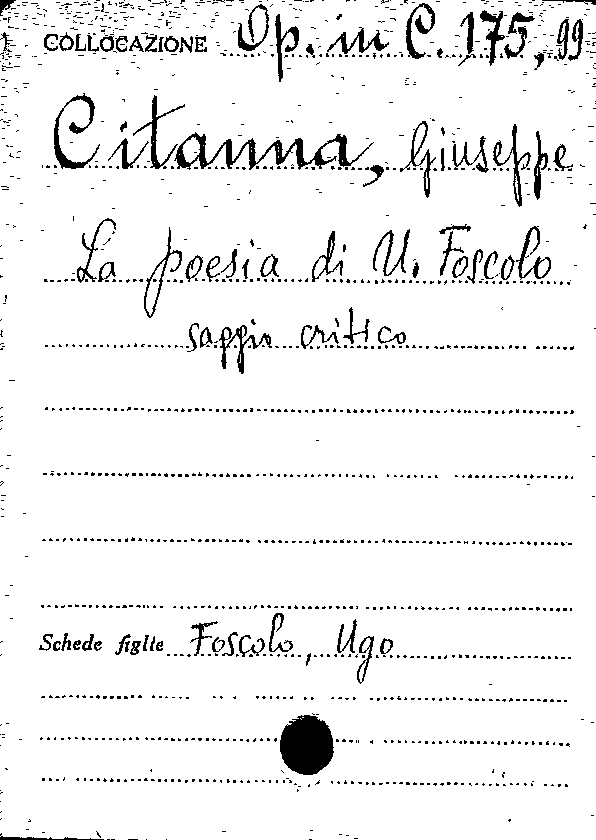 COLLOCAZIONE Op. in C. 175, 99
Citanna, Giuseppe
La poesia di U. Foscolo
saggio critico
Schede figlie Foscolo, Ugo